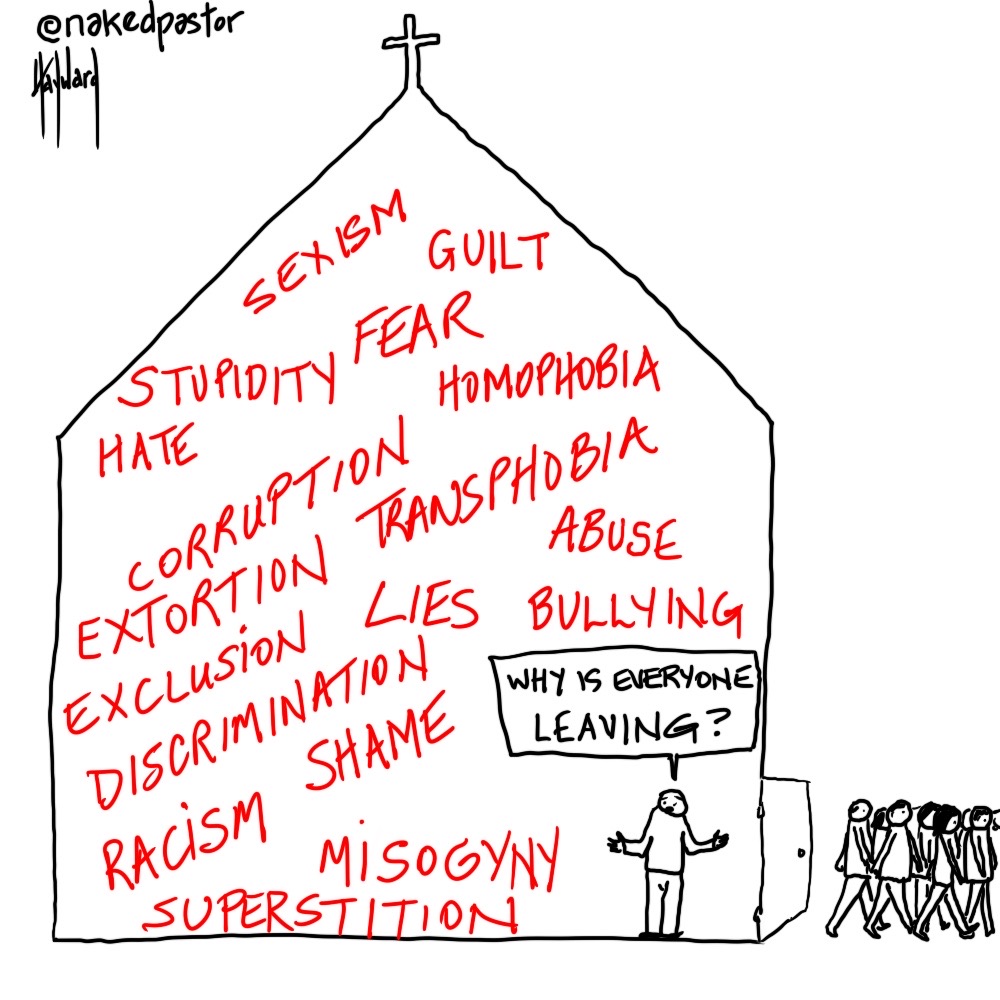 @nakedpastor
Hayward
SEXISM
GUILT
FEAR
STUPIDITY
HOMOPHOBIA
HATE
CORRUPTION
TRANSPHOBIA
ABUSE
EXTORTION
LIES
BULLYING
EXCLUSION
DISCRIMINATION
SHAME
WHY IS EVERYONE
LEAVING?
RACISM
MISOGYNY
SUPERSTITION